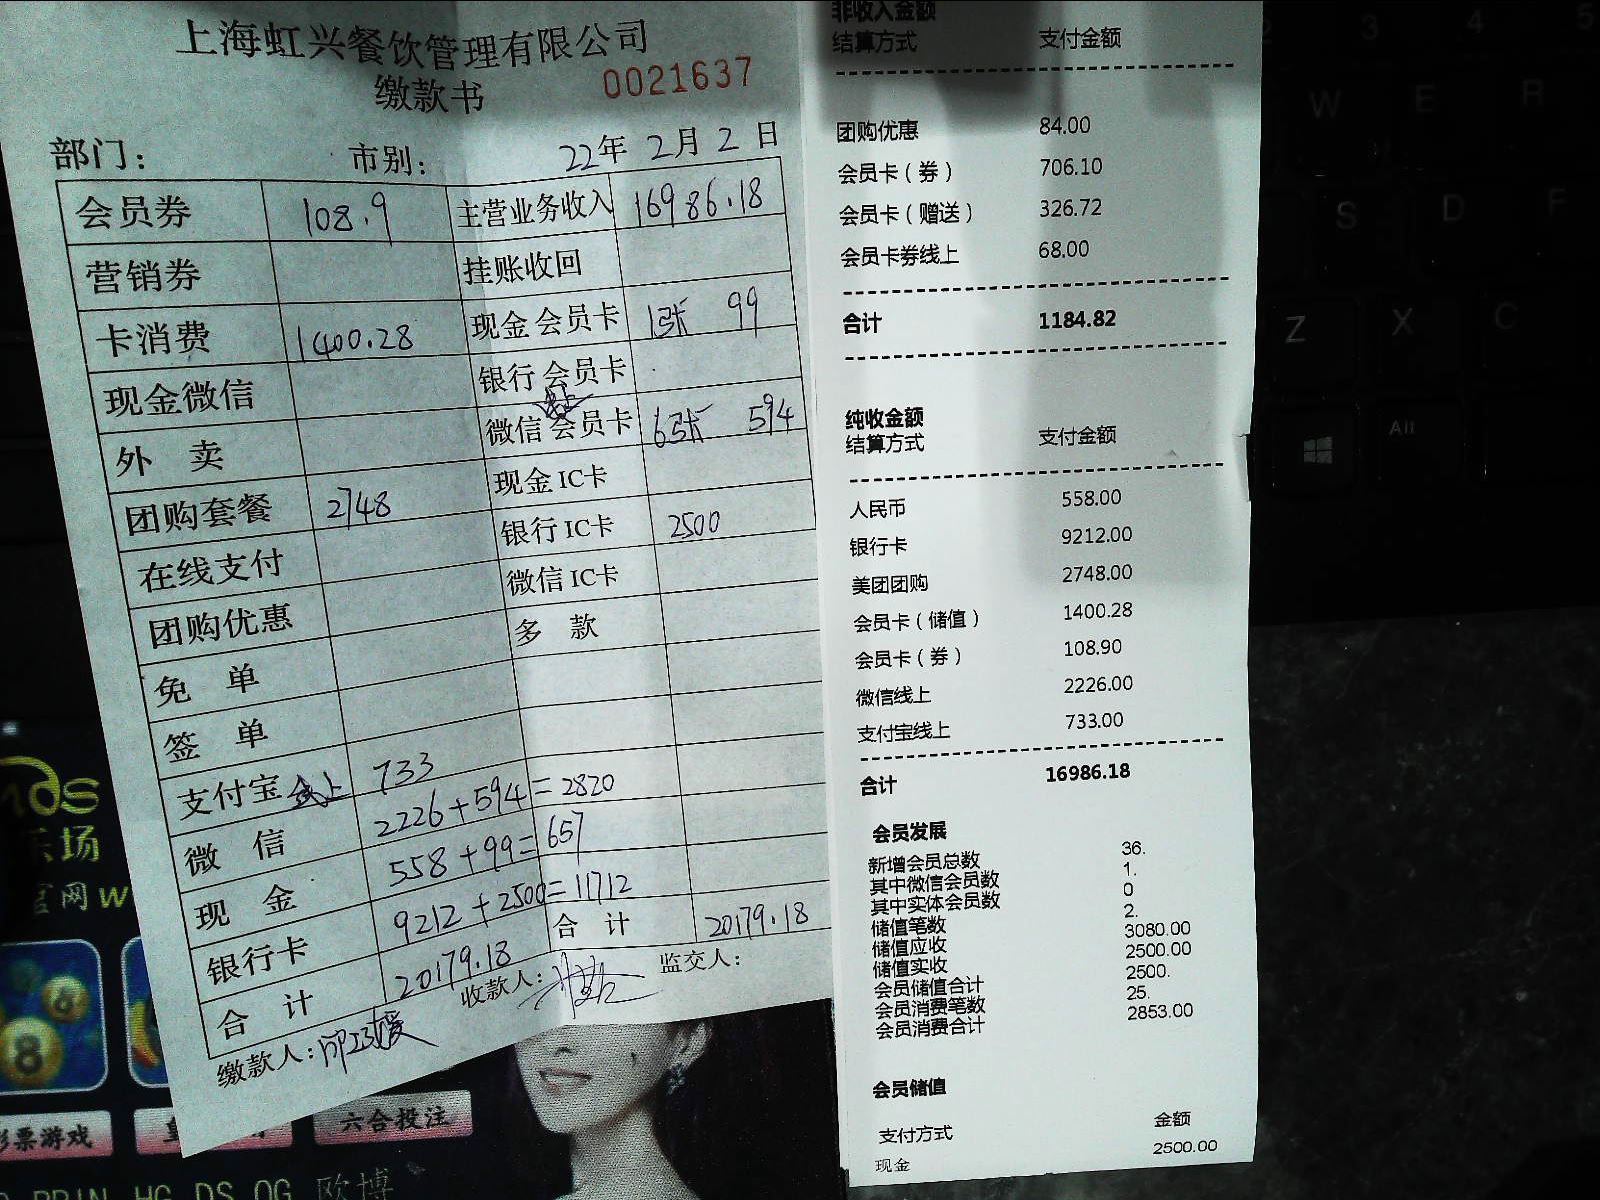 上海虹兴餐饮管理有限公司
缴款书 0021637
部门： 市别： 22年 2月 2日
会员券 108.9 主营业务收入 16986.18
营销券 挂账收回
卡消费 1400.28 现金会员卡 1张 99
现金微信 银行会员卡
外 卖 微信会员卡 6张 594
团购套餐 2748 现金IC卡
在线支付 银行IC卡 2500
团购优惠 微信IC卡
免 单 多 款
签 单
支付宝线上 733
微 信 2226+594=2820
现 金 558+99=657
银行卡 9212+2500=11712
合 计 20179.18 合 计 20179.18
缴款人： 收款人： 监交人：
非收入金额
结算方式 支付金额
团购优惠 84.00
会员卡（券） 706.10
会员卡（赠送） 326.72
会员卡券线上 68.00
合计 1184.82
纯收金额
结算方式 支付金额
人民币 558.00
银行卡 9212.00
美团团购 2748.00
会员卡（储值） 1400.28
会员卡（券） 108.90
微信线上 2226.00
支付宝线上 733.00
合计 16986.18
会员发展
新增会员总数 36.
其中微信会员数 1.
其中实体会员数 0
储值笔数 2.
储值应收 3080.00
储值实收 2500.00
会员储值合计 2500.
会员消费笔数 25.
会员消费合计 2853.00
会员储值
支付方式 金额
现金 2500.00
乐场
官网W
8
彩票游戏
六合投注
HG DS OG 欧博
2 3 4 5
W E R
S D F
Z X C
Alt